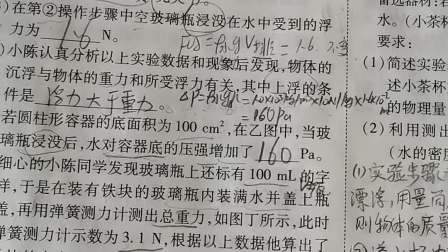 )在第②操作步骤中空玻璃瓶浸没在水中受到的浮
力为 1.6 N。
)小陈认真分析以上实验数据和现象后发现,物体的
沉浮与物体的重力和所受浮力有关,其中上浮的条
件是 浮力大于重力。
若圆柱形容器的底面积为 100 cm²,在乙图中,当玻
璃瓶浸没后,水对容器底的压强增加了 160 Pa。
细心的小陈同学发现玻璃瓶上还标有 100 mL 的字
样,于是在装有铁块的玻璃瓶内装满水并盖上瓶
盖,再用弹簧测力计测出总重力,如图丁所示,此时
弹簧测力计示数为 3.1 N,根据以上数据他算出了
水。(小茶
要求:
(1)简述实验
述小茶杯
的物理量
(2)利用测出
(水的密度
(1)实验步骤
漂浮,用量筒
则物体的质量